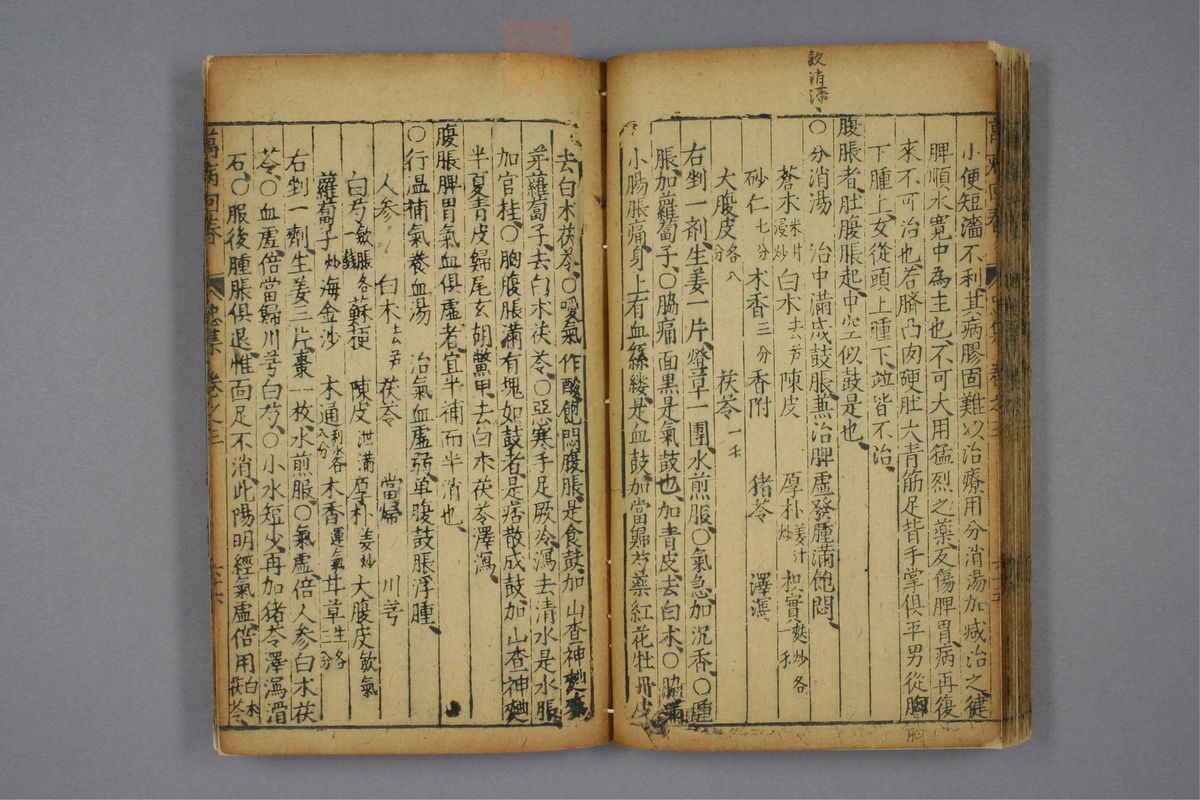 飲消滿
小便短澁不利其病膠固難以治療用分消湯加减治之健
脾順水寬中為主也不可大用猛烈之藥反傷脾胃病再復
來不可治也若臍凸肉硬肚大青筋足背手掌俱平男從脚
下腫上女從頭上腫下並皆不治
腹脹者肚腹脹起中空似鼓是也
○分消湯 治中滿成鼓脹兼治脾虛發腫滿飽悶
蒼朮米泔浸炒 白朮去芦 陳皮 厚朴姜汁炒 枳實麩炒各一錢
砂仁七分 木香三分 香附 猪苓 澤瀉
大腹皮各八分 茯苓一錢
右剉一剤生姜一片燈草一團水煎服○氣急加沉香○腫
脹加蘿蔔子○脇痛面黒是氣鼓也加青皮去白朮○脇滿
小腸脹痛身上有血絲縷是血鼓加當歸芍藥紅花牡丹皮
萬病回春 忠集 卷之三
去白朮茯苓○噯氣作酸飽悶腹脹是食鼓加山查神麯麥
芽蘿蔔子去白朮茯苓○惡寒手足厥冷瀉去清水是水脹
加官桂○胸腹脹滿有塊如鼓者是痞散成鼓加山查神麯
半夏青皮歸尾玄胡鱉甲去白朮茯苓澤瀉
腹脹脾胃氣血俱虛者宜半補而半消也
○行温補氣養血湯 治氣血虛弱单腹鼓脹浮腫
人參 白朮去芦 茯苓 當歸 川芎
白芍斂脹各一錢 蘇梗 陳皮泄滿 厚朴姜炒 大腹皮斂氣
蘿蔔子炒 海金沙 木通利水各八分 木香運氣 甘草生各二分
右剉一劑生姜三片棗一枚水煎服○氣虛倍人參白朮茯
苓○血虛倍當歸川芎白芍○小水短少再加猪苓澤瀉滑
石○服後腫脹俱退惟面足不消此陽明經氣虛倍用白朮茯苓
萬病回春 忠集 卷之三